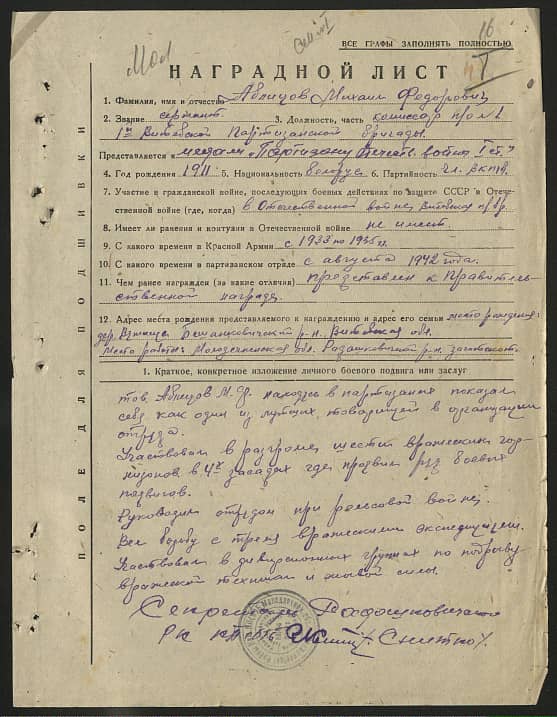 16
ВСЕ ГРАФЫ ЗАПОЛНЯТЬ ПОЛНОСТЬЮ
НАГРАДНОЙ ЛИСТ
I
1. Фамилия, имя и отчество Михаил Федорович
2. Звание сержант 3. Должность, часть комиссар
1й Витебской Партизанской бригады.
Представляется к медали "Партизану Отечеств. война I ст."
4. Год рождения 1911 5. Национальность белорус 6. Партийность чл. ВКП(б)
7. Участие в гражданской войне, последующих боевых действиях по защите СССР и Отече-
ственной войне (где, когда) в Отечественной войне, Витебская
8. Имеет ли ранения и контузии в Отечественной войне не имеет
9. С какого времени в Красной Армии с 1933 по 1935 г.
10. С какого времени в партизанском отряде с августа 1942 года.
11. Чем ранее награжден (за какие отличия) представлен к Правитель-
ственной награде.
12. Адрес места рождения представляемого к награждению и адрес его семьи место рождения:
дер. Бешанковический р-н. Витебская обл.
Место работы: Молодечненская обл. Радошковичский р-н.
1. Краткое, конкретное изложение личного боевого подвига или заслуг
тов. М.Ф. находясь в партизанах показал
себя как один из лучших товарищей в организации
отряда.
Участвовал в разгроме, шести вражеских гар-
низонов в 4х засадах где проявил ряд боевых
подвигов.
Руководил отрядом при рельсовой войне.
Вел борьбу с тремя вражескими экспедициями.
Участвовал в диверсионных группах по подрыву
вражеской техники и живой силы.
Секретарь Радошковичского
РК КП(б)Б
ПОЛЕ ДЛЯ ПОДШИВКИ